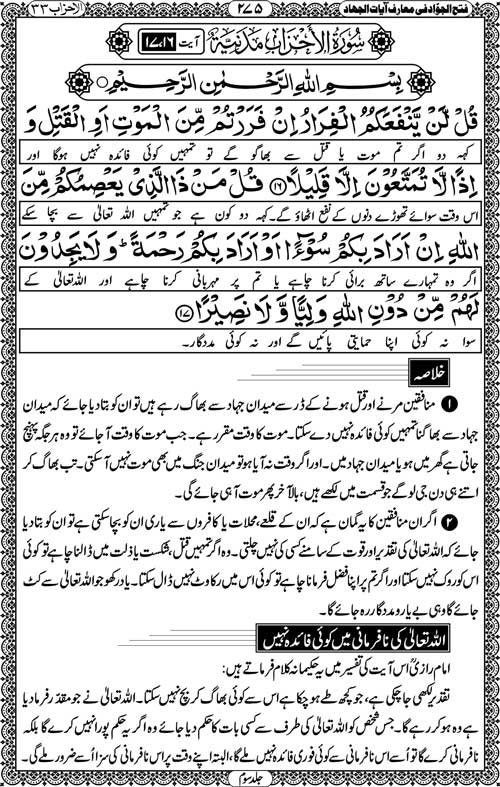 فتح الجوّاد فی معارف آیات الجهاد ۲۷۵ الاحزاب ۳۳
سُوْرَةُ الْاَحْزَابِ مَدَنِيَّةٌ آیت ۱۷،۱۶
بِسْمِ اللهِ الرَّحْمٰنِ الرَّحِيْمِ
قُلْ لَّنْ يَّنْفَعَكُمُ الْفِرَارُ اِنْ فَرَرْتُمْ مِّنَ الْمَوْتِ اَوِ الْقَتْلِ وَ
کہہ دو اگر تم موت یا قتل سے بھاگو گے تو تمہیں کوئی فائدہ نہیں ہوگا اور
اِذًا لَّا تُمَتَّعُوْنَ اِلَّا قَلِيْلًا ﴿۱۶﴾ قُلْ مَنْ ذَا الَّذِيْ يَعْصِمُكُمْ مِّنَ
اس وقت سوائے تھوڑے دنوں کے نفع اٹھاؤ گے۔ کہہ دو کون ہے جو تمہیں اللہ تعالیٰ سے بچا سکے
اللهِ اِنْ اَرَادَ بِكُمْ سُوْٓءًا اَوْ اَرَادَ بِكُمْ رَحْمَةً ؕ وَلَا يَجِدُوْنَ
اگر وہ تمہارے ساتھ برائی کرنا چاہے یا تم پر مہربانی کرنا چاہے اور اللہ تعالیٰ کے
لَهُمْ مِّنْ دُوْنِ اللهِ وَلِيًّا وَّ لَا نَصِيْرًا ﴿۱۷﴾
سوا نہ کوئی اپنا حمایتی پائیں گے اور نہ کوئی مددگار۔
خلاصہ
۱ منافقین مرنے اور قتل ہونے کے ڈر سے میدان جہاد سے بھاگ رہے ہیں تو ان کو بتا دیا جائے کہ میدان
جہاد سے بھاگنا تمہیں کوئی فائدہ نہیں دے سکتا۔ موت کا وقت مقرر ہے۔ جب موت کا وقت آ جائے تو وہ ہر جگہ پہنچ
جاتی ہے گھر میں ہو یا میدان جہاد میں۔ اور اگر وقت نہ آیا ہو تو میدان جنگ میں بھی موت نہیں آ سکتی۔ تب بھاگ کر
اتنے ہی دن جی لو گے جو قسمت میں لکھے ہیں، بالآخر پھر موت آ ہی جائے گی۔
۲ اگر ان منافقین کا یہ گمان ہے کہ ان کے قلعے، محلات یا کافروں سے یاری ان کو بچا سکتی ہے تو ان کو بتا دیا
جائے کہ اللہ تعالیٰ کی تقدیر اور قوت کے سامنے کسی کی نہیں چلتی۔ وہ اگر تمہیں قتل، شکست یا ذلت میں ڈالنا چاہے تو کوئی
اس کو روک نہیں سکتا اور اگر تم پر اپنا فضل فرمانا چاہے تو کوئی اس میں رکاوٹ نہیں ڈال سکتا۔ یاد رکھو جو اللہ تعالیٰ سے کٹ
جائے گا وہی بے یار و مددگار رہ جائے گا۔
اللہ تعالیٰ کی نافرمانی میں کوئی فائدہ نہیں
امام رازیؒ اس آیت کی تفسیر میں یہ حکیمانہ کلام فرماتے ہیں:
تقدیر لکھی جا چکی ہے، جو کچھ طے ہو چکا ہے اس سے کوئی بھاگ کر بچ نہیں سکتا۔ اللہ تعالیٰ نے جو مقدر فرما دیا
ہے وہ ہو کر رہے گا۔ جس شخص کو اللہ تعالیٰ کی طرف سے کسی بات کا حکم دیا جائے وہ اگر یہ حکم پورا نہیں کرے گا بلکہ
نافرمانی کرے گا تو اُسے اس نافرمانی سے کوئی فوری فائدہ نہ ملے گا، البتہ اپنے وقت پر اس نافرمانی کی سزا اُسے ضرور ملے گی۔
جلد سوم